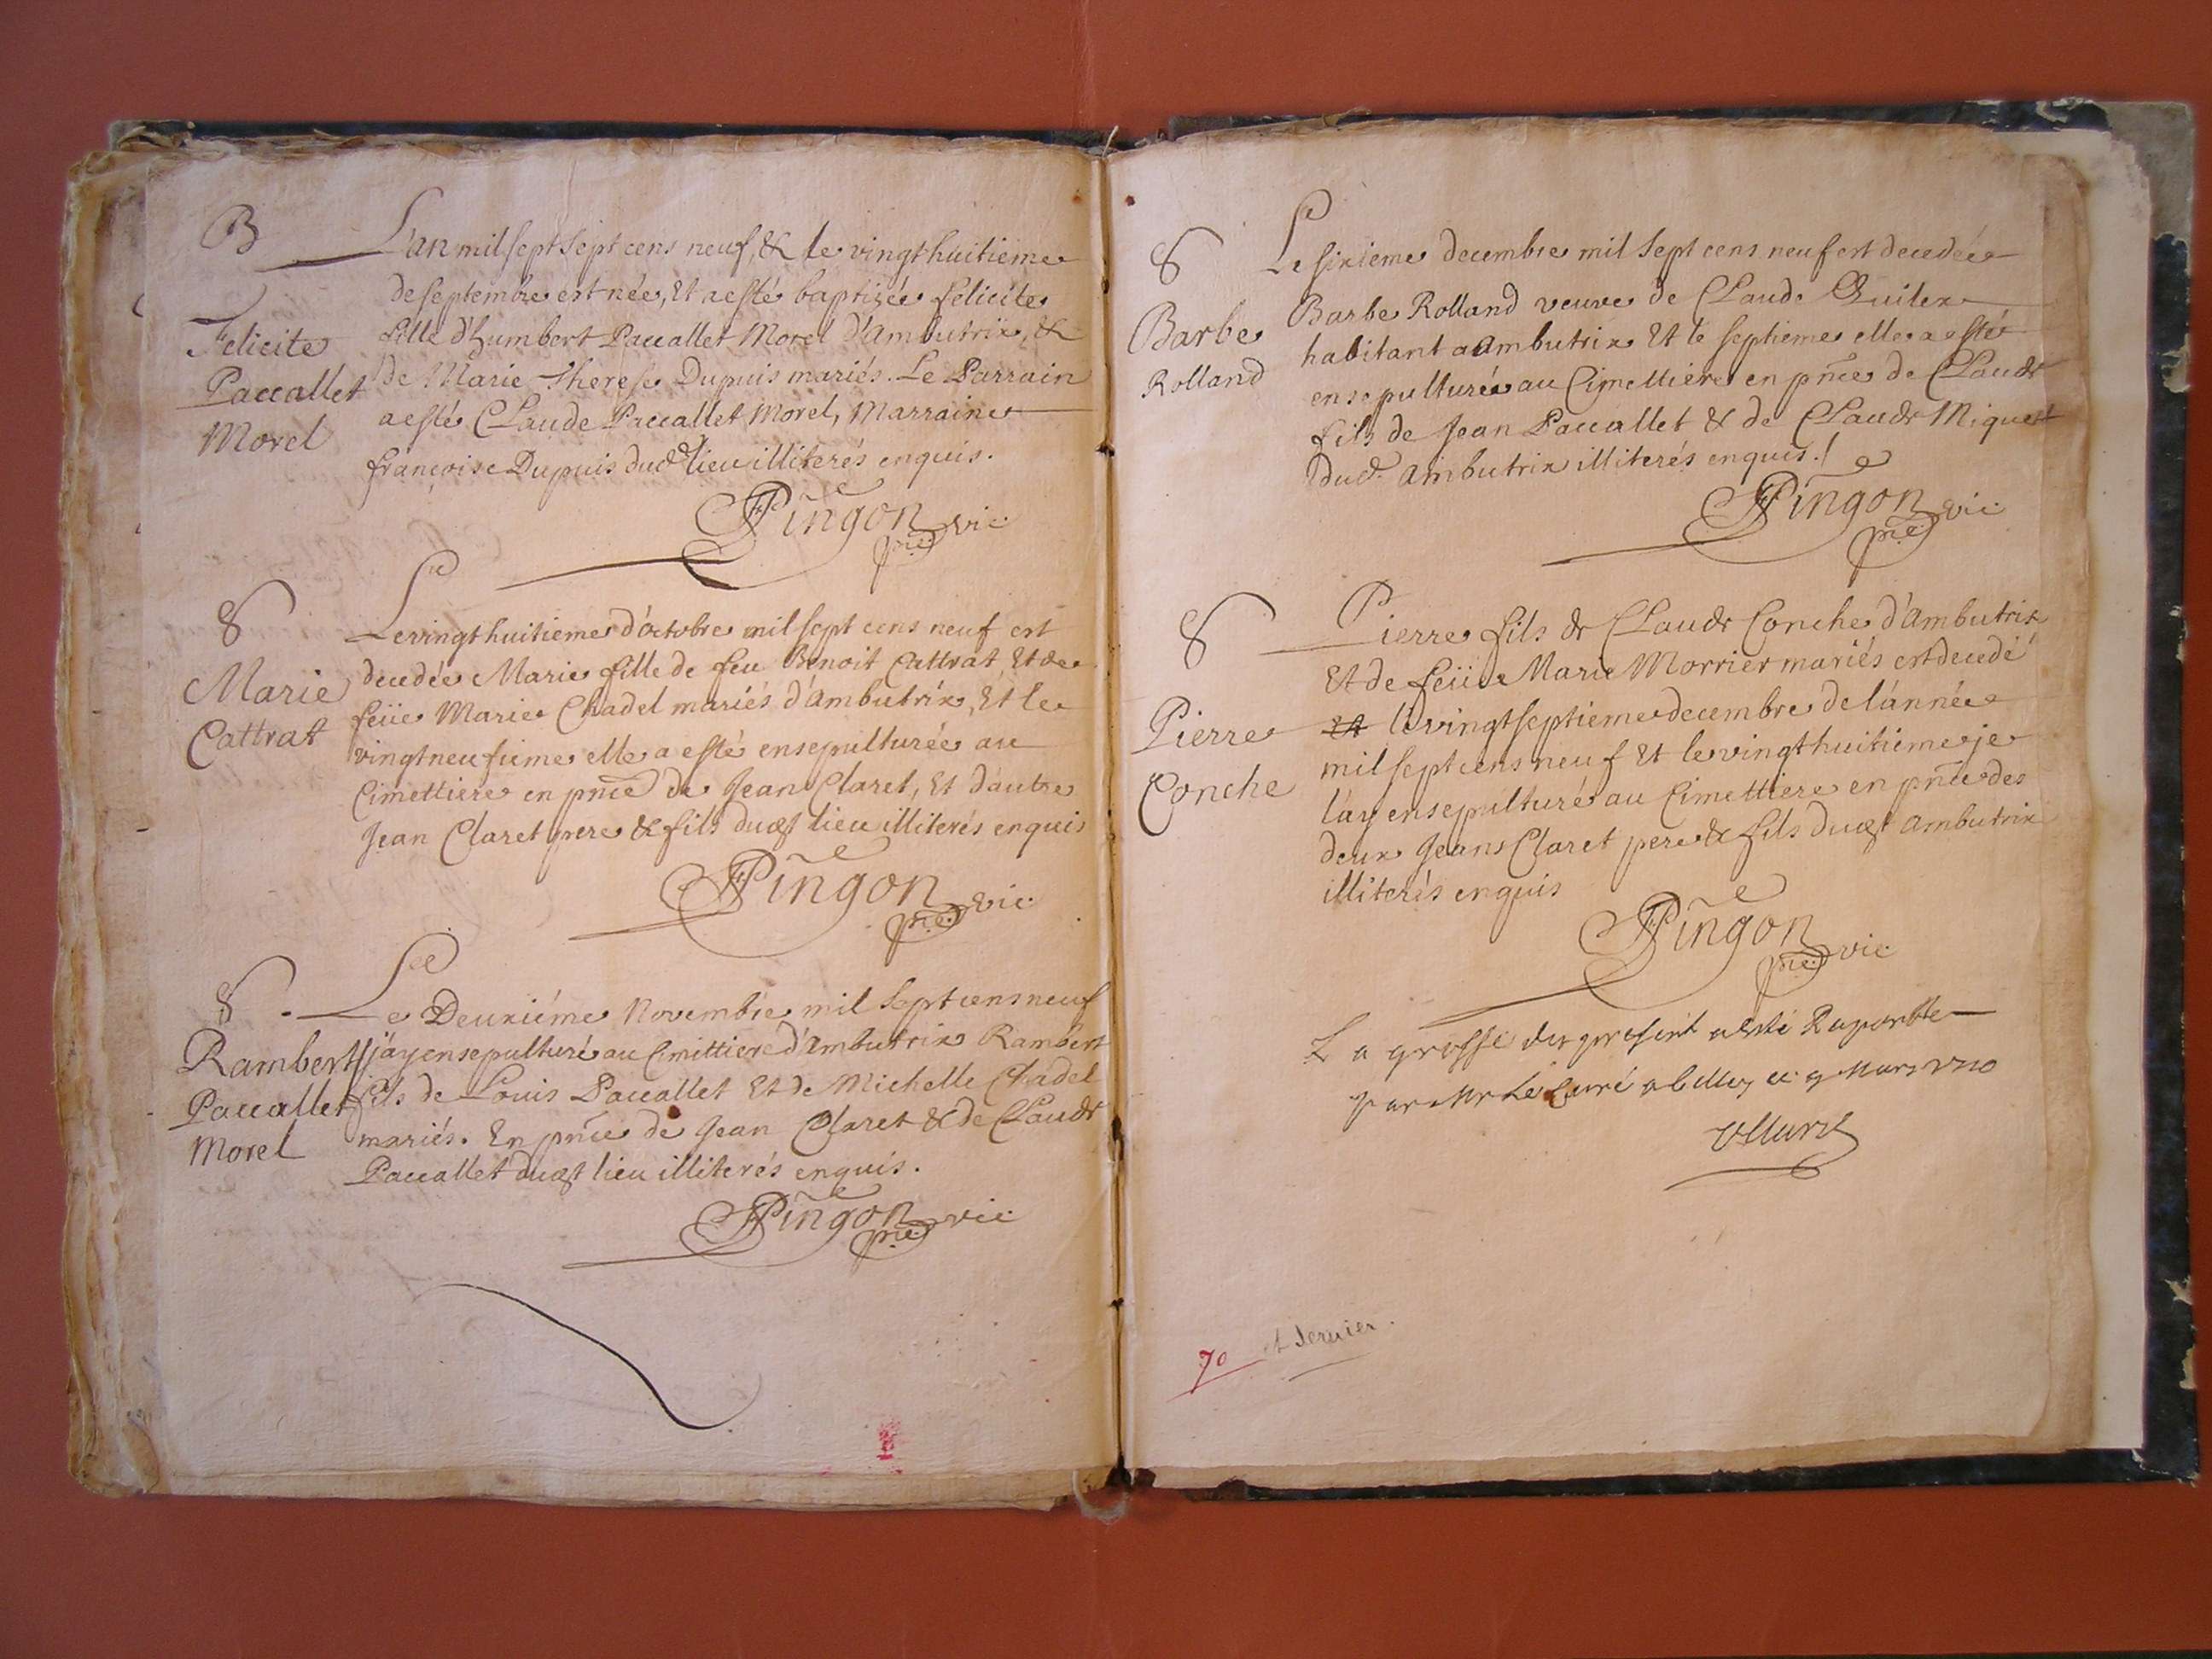 B
Felicite
Paccallet
Morel
L'an mil sept sept cens neuf, & le vingt huitieme
de septembre est née, Et a esté baptisée felicite
fille d'humbert Paccallet Morel d'Ambutrix, &
de Marie Therese Dupuis mariés. Le Parrain
a esté Claude Paccallet Morel, Marraine
françoise Dupuis dud lieu illiterés enquis.
Pingon pre vic
S
Marie
Cattrat
Le vingt huitieme d'octobre mil sept cens neuf est
decedée Marie fille de feu Benoit Cattrat Et de
feüe Marie Chadel mariés d'Ambutrix, Et le
vingt neufieme elle a esté ensepulturée au
Cimettiere en pnce de Jean Claret, Et d'autre
Jean Claret pere & fils dudt lieu illiterés enquis
Pingon pre vic
S
Rambert
Paccallet
Morel
Le Deuxiéme Novembre mil sept cens neuf
j'ay ensepulturé au Cimittiere d'Ambutrix Rambert
fils de Louis Paccallet Et de Michelle Chadel
mariés. En pnce de Jean Claret & de Claude
Paccallet dudt lieu illiterés enquis.
Pingon pre vic
S
Barbe
Rolland
Le sixieme decembre mil sept cens neuf est decedée
Barbe Rolland veuve de Claude
habitant a Ambutrix Et le septieme elle a esté
ensepulturée au Cimettiere en pnce de Claude
fils de Jean Paccallet & de Claude Miquet
dud. Ambutrix illiterés enquis.
Pingon pre vic
S
Pierre
Conche
Pierre fils de Claude Conche d'Ambutrix
Et de feüe Marie Morrier mariés est decedé
Et le vingt septieme decembre de l'année
mil sept cens neuf Et le vingt huitieme je
l'ay ensepulturé au Cimettiere en pnce des
deux Jeans Claret pere & fils dudt Ambutrix
illiterés enquis
Pingon pre vic
La grosse du present a esté Raportée
par Mr Le Curé a Belley ce 9 Mars 1710
70 et dernier.